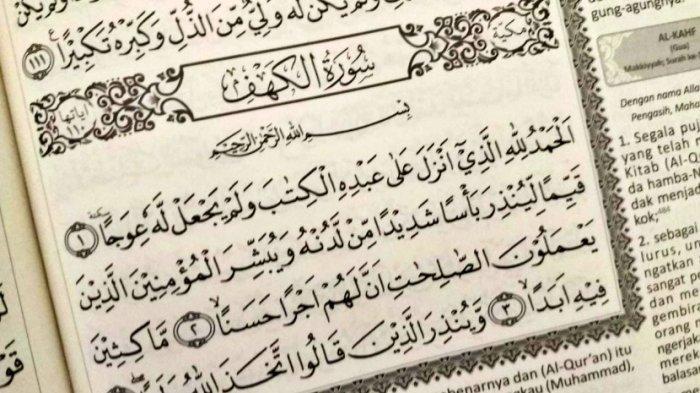 يَكُنْ لَّهٗ وَلِيٌّ مِّنَ الذُّلِّ وَكَبِّرْهُ تَكْبِيْرًا ١١١
مكية
سُوْرَةُ الْكَهْفِ
اٰياتها ١١٠
بِسْمِ اللّٰهِ الرَّحْمٰنِ الرَّحِيْمِ
اَلْحَمْدُ لِلّٰهِ الَّذِيْٓ اَنْزَلَ عَلٰى عَبْدِهِ الْكِتٰبَ وَلَمْ يَجْعَلْ لَّهٗ عِوَجًا ١
قَيِّمًا لِّيُنْذِرَ بَأْسًا شَدِيْدًا مِّنْ لَّدُنْهُ وَيُبَشِّرَ الْمُؤْمِنِيْنَ الَّذِيْنَ
يَعْمَلُوْنَ الصّٰلِحٰتِ اَنَّ لَهُمْ اَجْرًا حَسَنًا ٢ مَّاكِثِيْنَ
فِيْهِ اَبَدًا ٣ وَّيُنْذِرَ الَّذِيْنَ قَالُوا اتَّخَذَ اللّٰهُ
gung-agungnya.
AL-KAHF
(Gua)
Makkiyyah; Surah ke-
Dengan nama Alla
Pengasih, Maha
1. Segala puj
yang telah m
Kitab (Al-Q
da hamba-N
dak menjad
kok;484
2. sebagai
lurus, u
ngatkan
sangat p
dan me
gembira
orang
ngerjak
merek
balasa
benarnya dan (Al-Qur'an) itu
gkau (Muhammad),